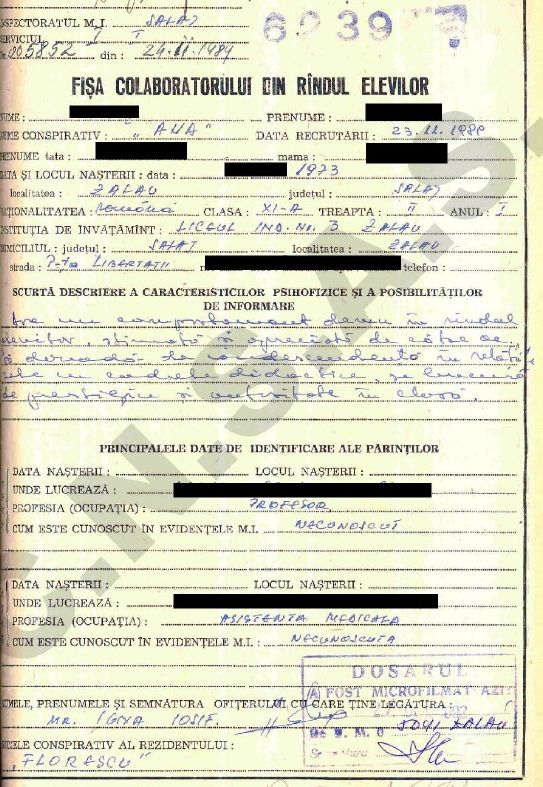 SPECTORATUL M.I. SALAJ
SERVICIUL I I
Nr. 005852 din : 24.11.1989
6239
FIŞA COLABORATORULUI DIN RÎNDUL ELEVILOR
UME : PRENUME :
UME CONSPIRATIV : „ANA” DATA RECRUTĂRII : 23.11.1989
RENUME tata : mama :
DATA ŞI LOCUL NAŞTERII : data : 1973
localitatea : ZALAU judeţul : SALAJ
NAŢIONALITATEA : Română CLASA : XI-A TREAPTA : II ANUL : I
STITUŢIA DE INVĂŢĂMÎNT : LICEUL IND. NR. 3 ZALAU
OMICILIUL : judeţul : SALAJ localitatea : ZALAU
strada : P-ţa LIBERTATII telefon :
SCURTĂ DESCRIERE A CARACTERISTICILOR PSIHOFIZICE ŞI A POSIBILITĂŢILOR
DE INFORMARE
Are un comportament demn în rîndul
elevilor, stimată și apreciată de către
dă dovadă de condescendență în
cu cadrele didactice, se bucură
de prestigiu și autoritate în clasă.
PRINCIPALELE DATE DE IDENTIFICARE ALE PĂRINŢILOR
DATA NAŞTERII : LOCUL NAŞTERII :
UNDE LUCREAZĂ :
PROFESIA (OCUPAŢIA) : PROFESOR
CUM ESTE CUNOSCUT ÎN EVIDENŢELE M.I. NECUNOSCUT
DATA NAŞTERII : LOCUL NAŞTERII :
UNDE LUCREAZĂ :
PROFESIA (OCUPAŢIA) : ASISTENTA MEDICALA
CUM ESTE CUNOSCUT ÎN EVIDENŢELE M.I. : NECUNOSCUTA
DOSARUL
A FOST MICROFILMAT AZI
UMELE, PRENUMELE ŞI SEMNĂTURA OFIŢERULUI CU CARE ŢINE LEGĂTURA :
MR. IGNA IOSIF
5041 ZALAU
UMELE CONSPIRATIV AL REZIDENTULUI :
„FLORESCU”
C.N.S.A.S.